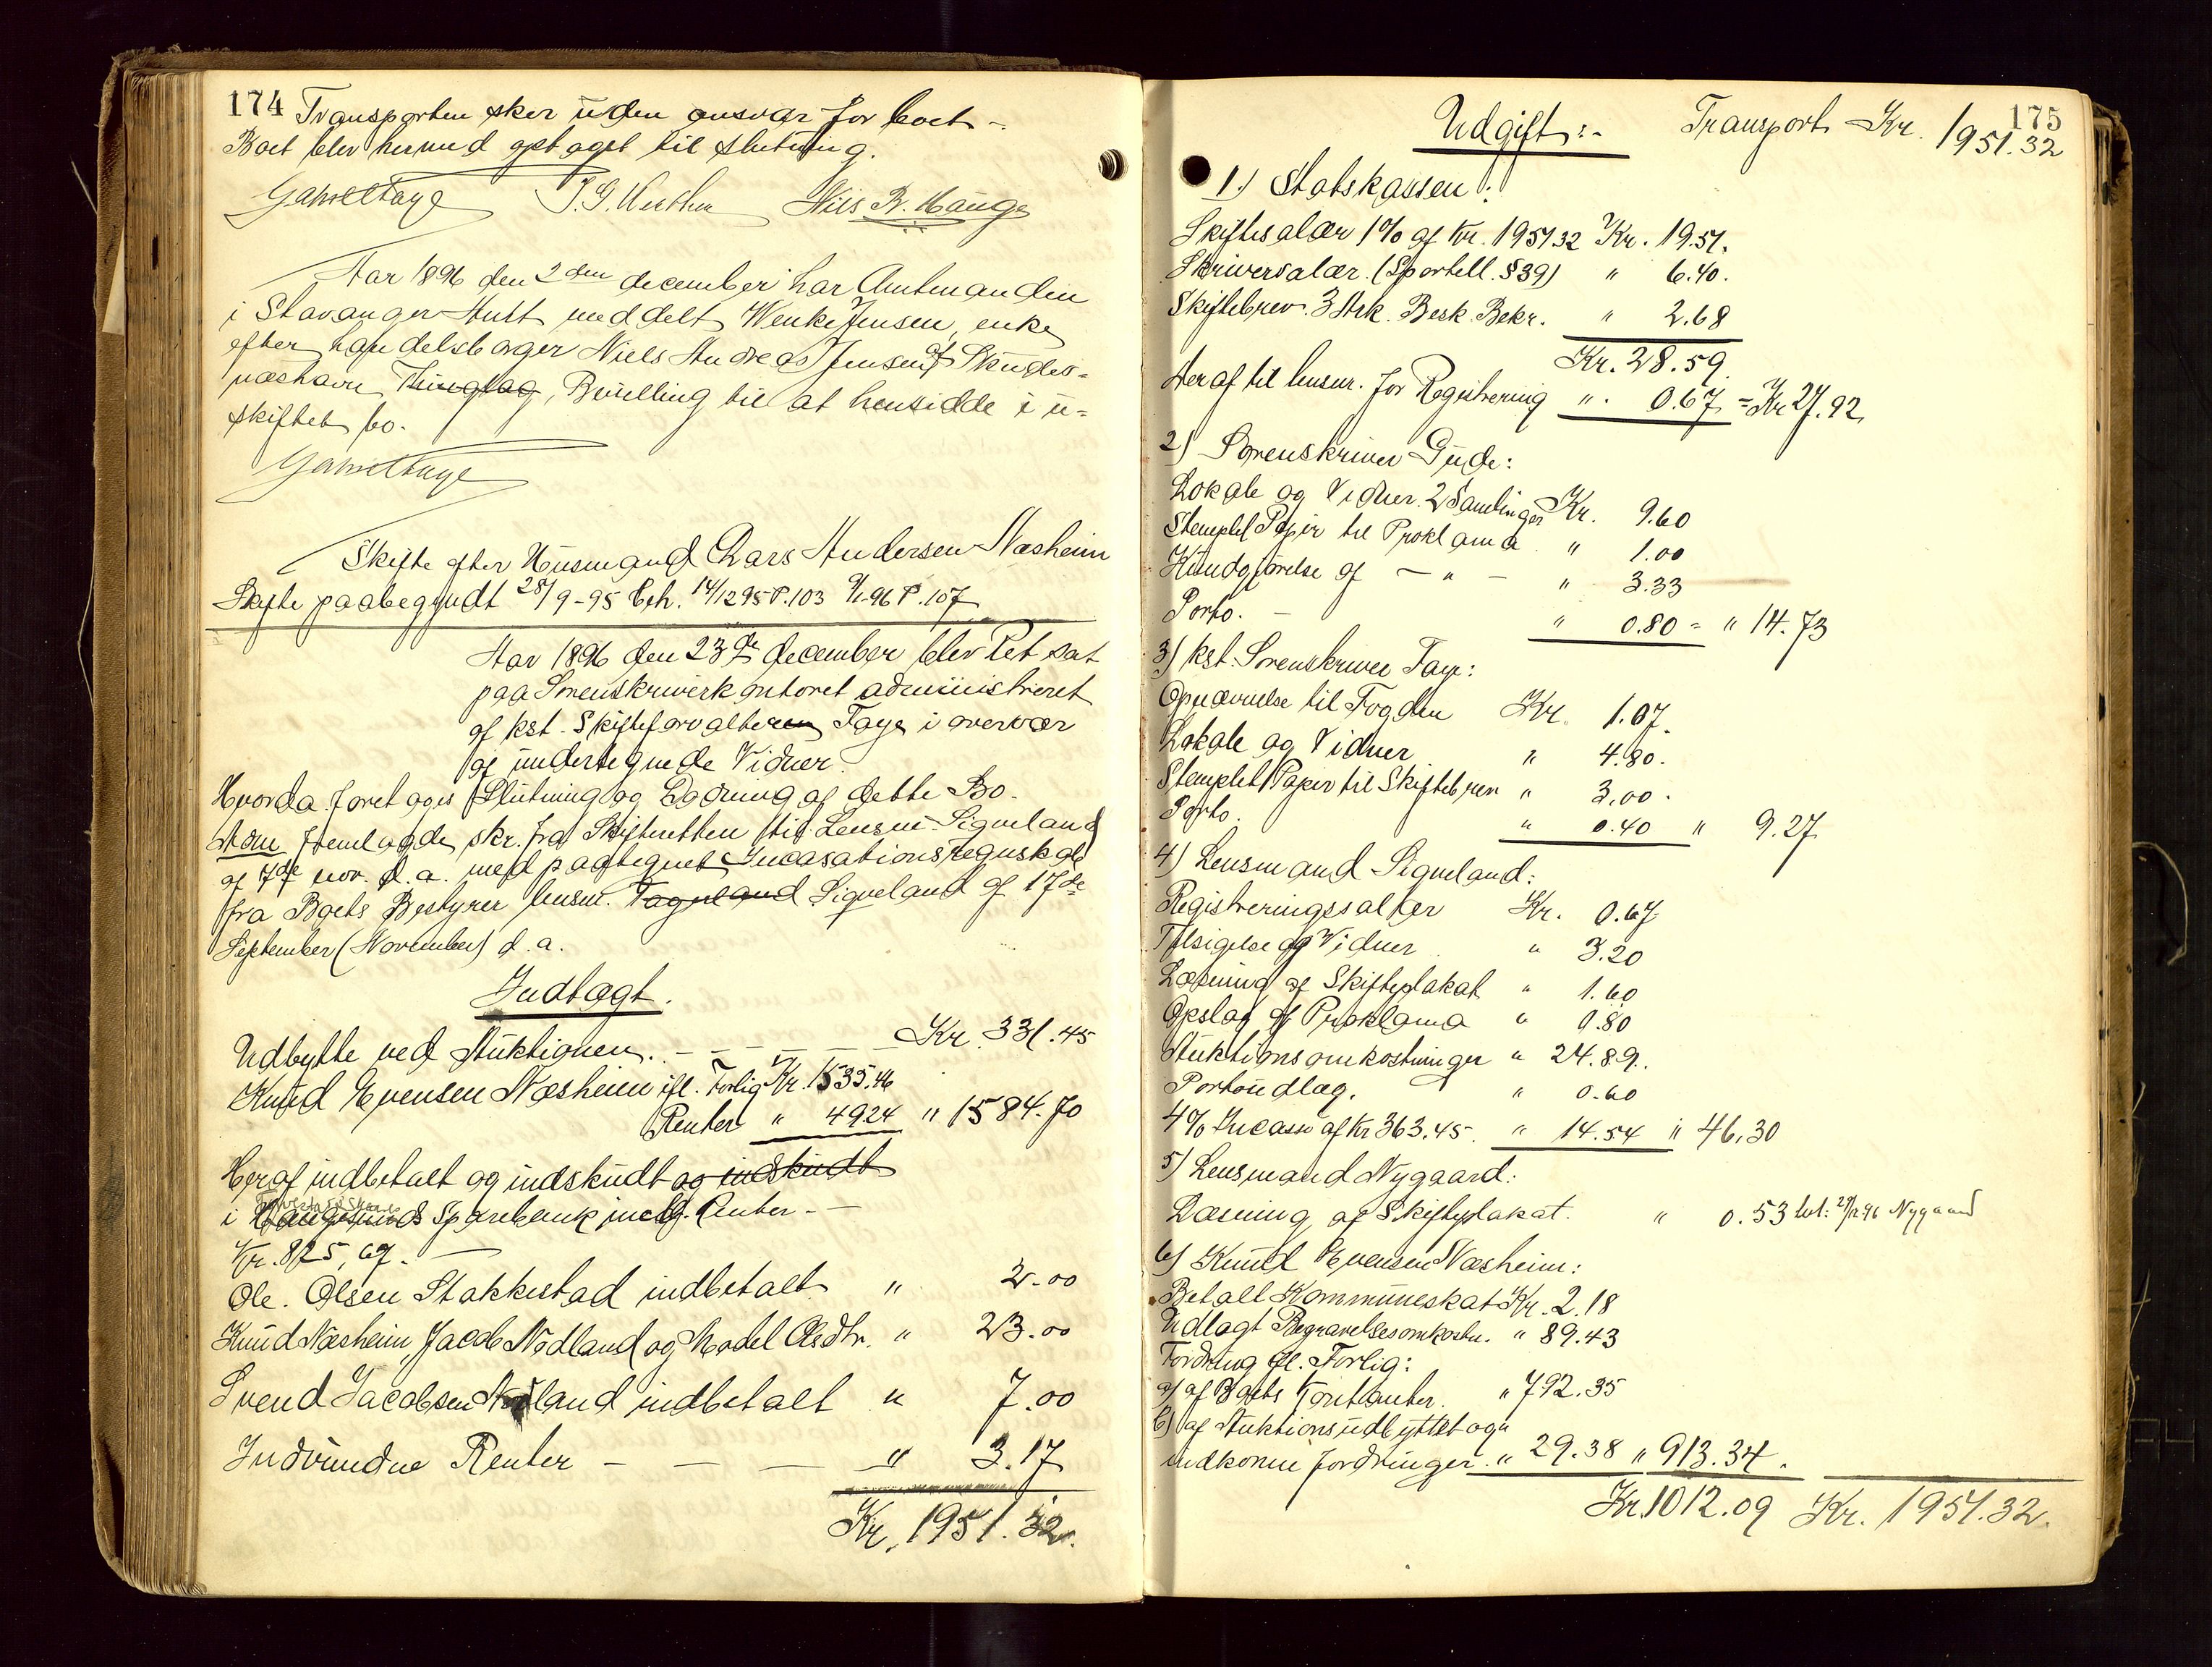 174 Transporten sker uden ansvar for boet -.
Boet blev hermed optaget til slutning.
Gabriel Faye Nils R. Hauge
Aar 1896 den 2den december har Amtmanden
i Stavanger Amt meddelt Wenke Jensen, enke
efter handelsborger Niels Andreas Jensen af Skudes-
næshavn Thinglag, Bevilling til at hensidde i u-
skiftet bo.
Gabriel Faye
Skifte efter Husmand Lars Andersen Næsheim
Skifte paabegyndt 28/9-95 Beh. 14/12 95 P. 103 P. 107
Aar 1896 den 23de december blev Ret sat
paa Sorenskriverkontoret administreret
af kst. Skifteforvalteren Faye i overvær
af undertegnede Vidner.
Hvorda foretoges Slutning og Lodning af dette Bo.
Adm fremlagde skr. fra Skifteretten til Lensm. Sigveland
af 7de nov. d. a. med paategnet Incasationsregnskab
fra Boets Bestyrer lensm. Vagveland Sigveland af 17de
September (November) d. a.
Indtægt.
Udbytte ved Auktionen. - - - - - Kr. 331.45
Knud Evensen Næsheim ifl. Forlig Kr. 1535.46
Renter " 49.24 " 1584.70
Heraf indbetalt og indskudt og indskudt
i Haugesunds Sparebank incl. Renter - -
Kr. 825,67. -
Ole. Olsen Stakkestad indbetalt " 2.00
Knud Næsheim, Jacob Nodland og Model Olsdtr. " 23.00
Svend Jacobsen Nodland indbetalt " 7.00
Indvundne Renter - - - " 3.17
Kr. 1951.32.
175
Udgift:- Transport Kr. 1951.32
1.) Statskassen:
Skiftesalær 1% af Kr. 1951.32 Kr. 19.51.
Skriversalær. (Sportell. §39) " 6.40.
Skiftebrev. 3 Ark. Besk. Bekr. " 2.68
Kr. 28.59.
Heraf til lensm. for Registrering " 0.67 = Kr 27.92.
2) Sorenskriver Gude:
Lokale og Vidner. 2 Samlinger Kr. 9.60
Stemplet Papir til Proklama " 1.00
Kundgjørelse af - " - " 3.33
Porto. - " 0.80 = " 14.73
3) kst. Sorenskriver Faye:
Opnævnelse til Fogden Kr. 1.07.
Lokale og Vidner " 4.80.
Stemplet Papir til Skiftebrev " 3.00.
Porto. " 0.40 " 9.27
4) Lensmand Sigveland:
Registreringssalær Kr. 0.67
Tilsigelse og Vidner " 3.20
Læsning af Skifteplakat " 1.60
Opslag af Proklama " 0.80
Auktionsomkostninger " 24.89.
Portoudlæg. " 0.60
4% Incasso af Kr 363.45. " 14.54 " 46.30
5) Lensmand Nygaard:
Læsning af Skifteplakat. " 0.53 bet: 29/12 96 Nygaard
6) Knud Evensen Næsheim:
Betalt Kommuneskat Kr. 2.18
Udlagt Begravelsesomkostn. " 89.43
Fordring ifl. Forlig:
a) af Boets Kontanter. " 792.35
b) af Auktionsudbyttet og
indkomne fordringer. " 29.38 " 913.34.
Kr. 1012.09 Kr. 1951.32.